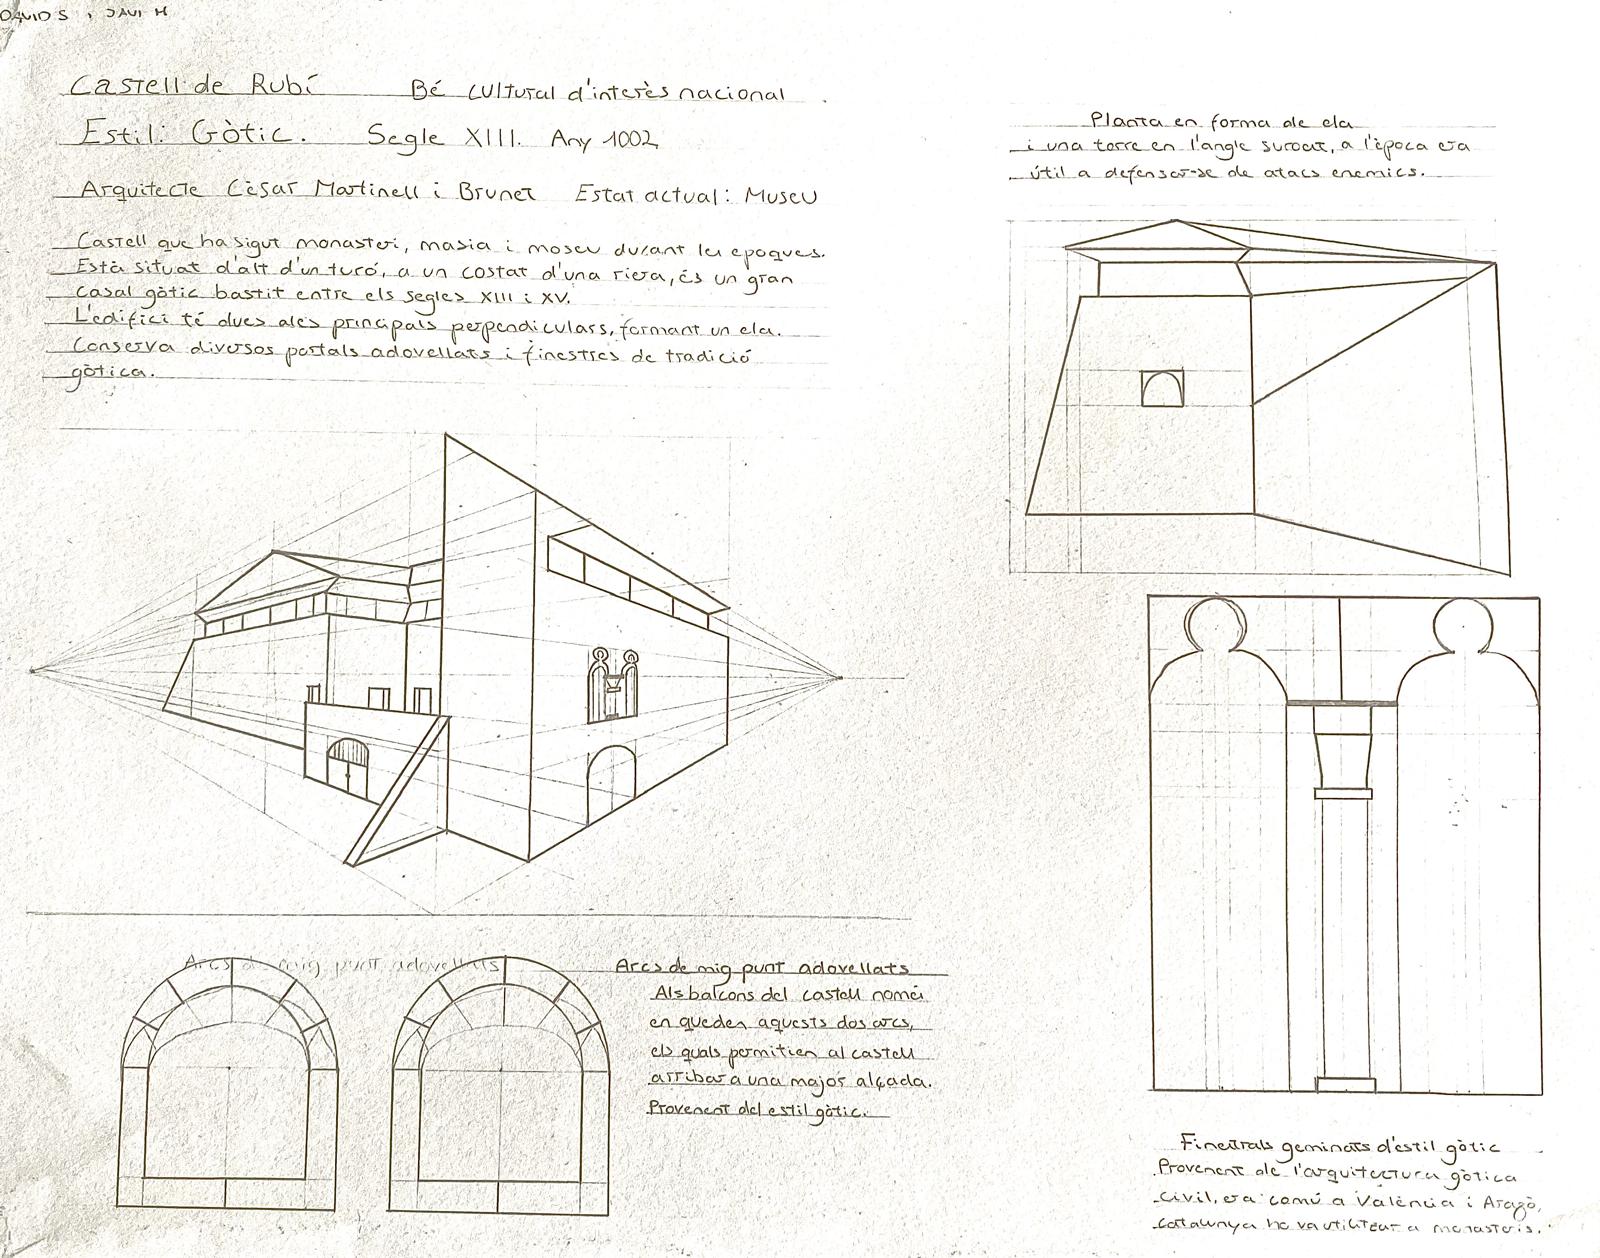 DAVID S , JAVI M
Castell de Rubí Bé cultural d'interès nacional
Estil: Gòtic. Segle XIII. Any 1002
Arquitecte Cèsar Martinell i Brunet Estat actual: Museu
Castell que ha sigut monastori, masia i moseu durant les epoques.
Està situat d'alt d'un turó, a un costat d'una riera, és un gran
casal gòtic bastit entre els segles XIII i XV.
L'edifici té dues ales principals perpendiculars, formant un ela.
Conserva diversos portals adovellats i finestres de tradició
gòtica.
Planta en forma de ela
i una torre en l'angle suroat, a l'època era
útil a défensar-se de atacs enemics.
Arcs de mig punt adovellats
Arcs de mig punt adovellats
Als balcons del castell només
en queden aquests dos arcs,
els quals permitien al castell
arribar a una major alçada.
Provenent del estil gòtic.
Finestrals geminats d'estil gòtic
Provenent de l'arquitectura gòtica
civil, era comú a València i Aragó,
Catalunya ho va utilitzar a monastoris.